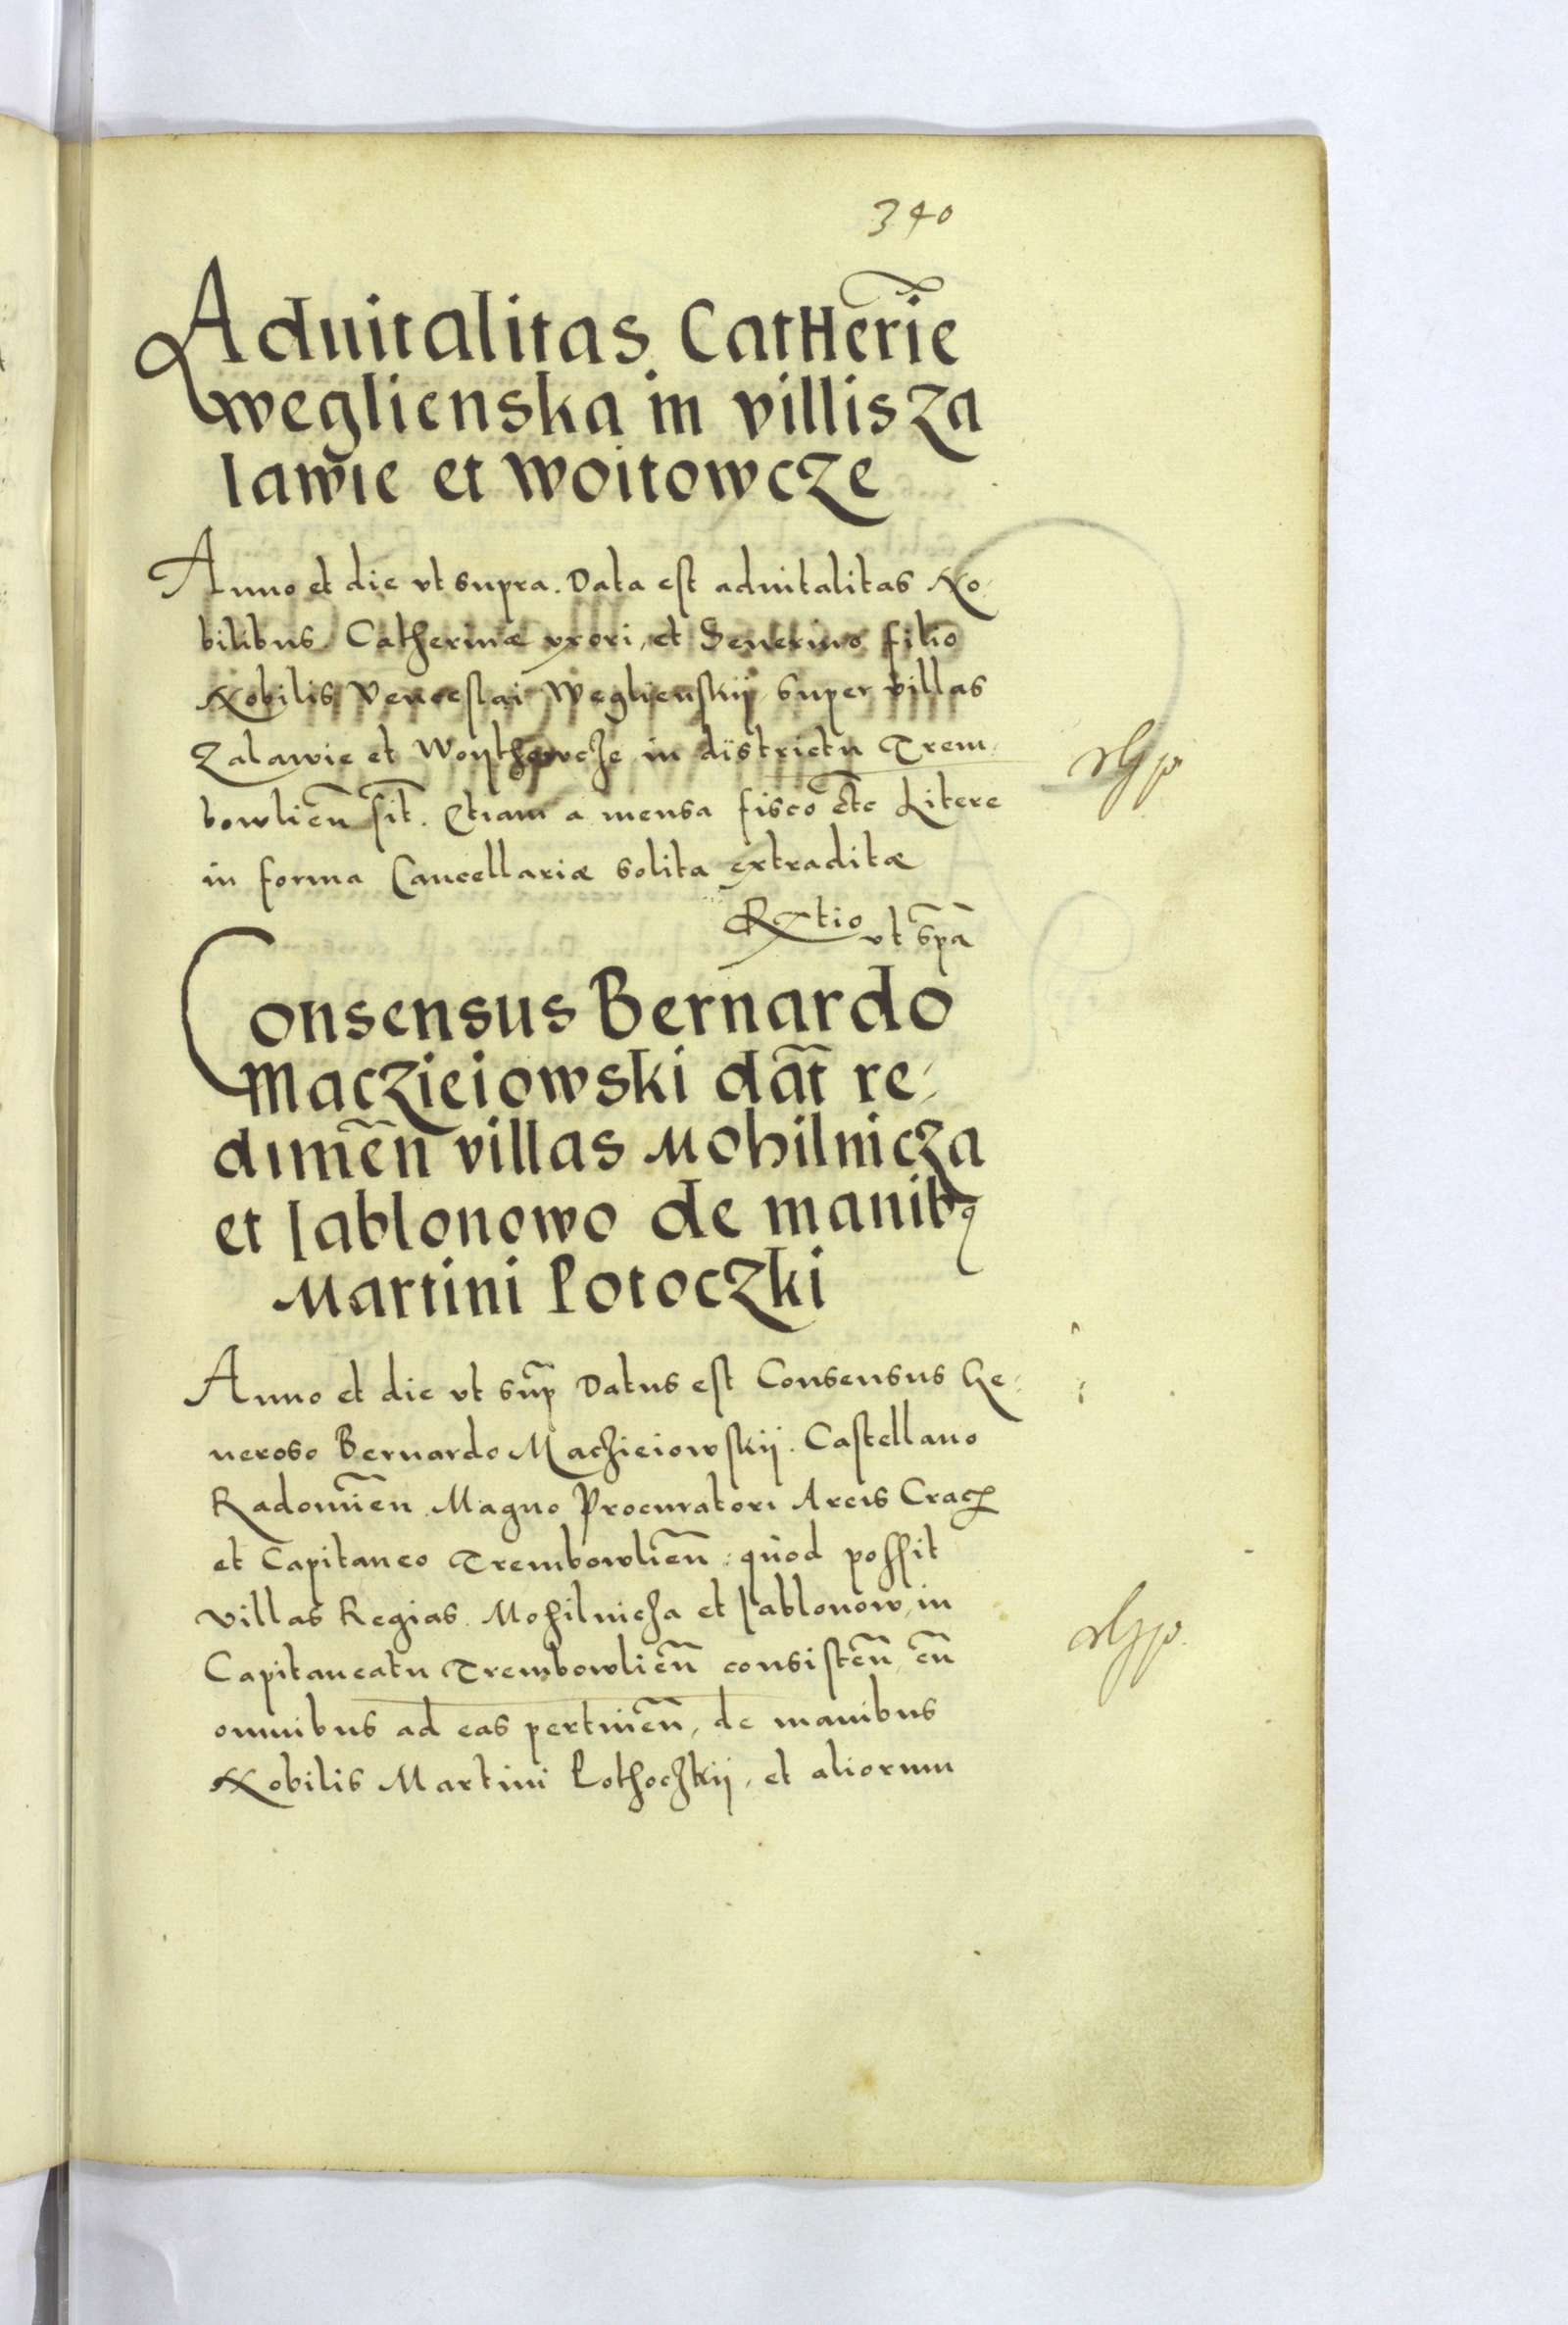 340
Aduitalitas Catherīe
weglienska in villis Za
lawie et Woitowcze
Anno et die vt supra. Data est aduitalitas No
bilibus Catherinæ vxori, et Seuerino filio
Nobilis Venceslai Weglienskij super villas
Zalawie et Woythowcze in districtu Trem
bowlien̄ sīt. Etiam a mensa fisco etc̄ Litere
in forma Cancellariæ solita extraditæ
Rtio vt sp̄a
Consensus Bernardo
Maczieiowski dāt re
dimēn villas Mohilnicza
et Iablonowo de manibꝫ
Martini Potoczki
Anno et die vt sup̄ Datus est Consensus Ge
neroso Bernardo Maczieiowskij. Castellano
Radomien̄ Magno Procuratori Arcis Crac
et Capitaneo Trembowlien̄: quod possit
villas Regias. Mohilnicza et Iablonow, in
Capitaneatu Trembowlien̄ consisten̄ cū
omnibus ad eas pertinen̄, de manibus
Nobilis Martini Pothoczkij, et aliorum